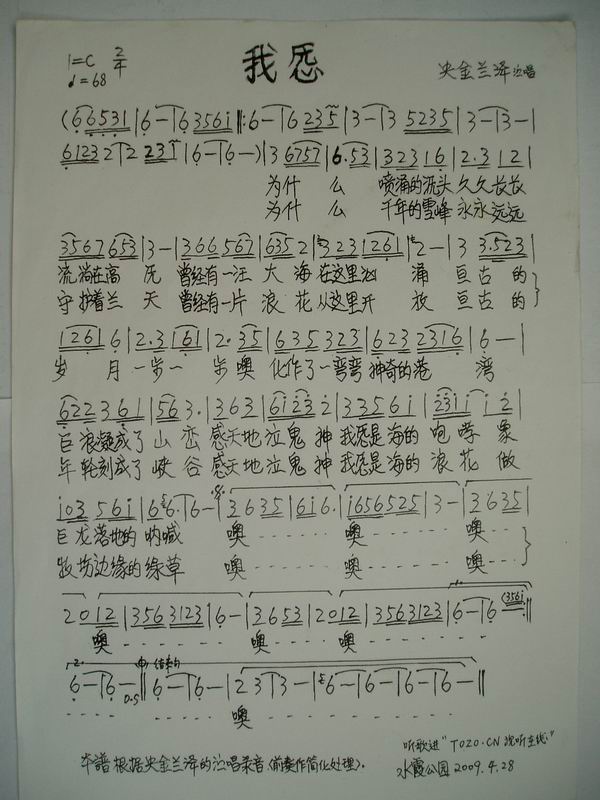 1=C 2/4
♩=68
我恐
央金兰泽演唱
(6 6531 | 6 - | 6 356i ‖: 6 - | 6 235 | 3 - | 3 5235 | 3 - | 3 - |
6123 2 | 2 235 | 6 - | 6 - ) | 3 6757 | 6. 53 | 3231 6 | 2.3 12 |
为什 么 喷涌的流头 久久长长
为什 么 千年的雪峰 永永远远
3567 653 | 3 - | 366 567 | 635 2 | 3231 261 | 2 - | 3 3.523 |
流淌在高 氏 曾经有一汪 大 海 在这里汹 涌 亘古 的
守护着兰 天 曾经有一片 浪 花 从这里开 放 亘古 的
1261 6 | 2.3 161 | 2. 35 | 635 323 | 623 2316 | 6 - |
岁 月 一步一 步噢 化作了一弯弯 神奇的港 湾
622 361 | 563. | 363 | 6i23 2 | 3356i | 23ii i 2 |
巨浪凝成了 山 峦 感天地泣鬼 神 我恐是海的 咆 哮 象
年轮刻成了 峡 谷 感天地泣鬼 神 我恐是海的 浪 花 做
i03 56i | 6 6. | 6 - | 3635 | 6i6. | i656525 | 3 - | 3635 |
巨龙落地的 呐喊 噢 噢 噢
牧场边缘的绿草 噢 噢 噢
2 012 | 3563123 | 6 - | 3653 | 2 012 | 3563123 | 6 - | 6 (356i :‖
噢 噢 噢
6 - | 6 - ‖ 6 - | 6 - | 2 3 | 3 - | 6 - | 6 - | 6 - | 6 - ‖
2. 结束句
D.S
噢
本谱根据央金兰泽的演唱录音(前奏作简化处理).
听歌进"TOZO.CN视听在线"
水霞公园 2009.4.28